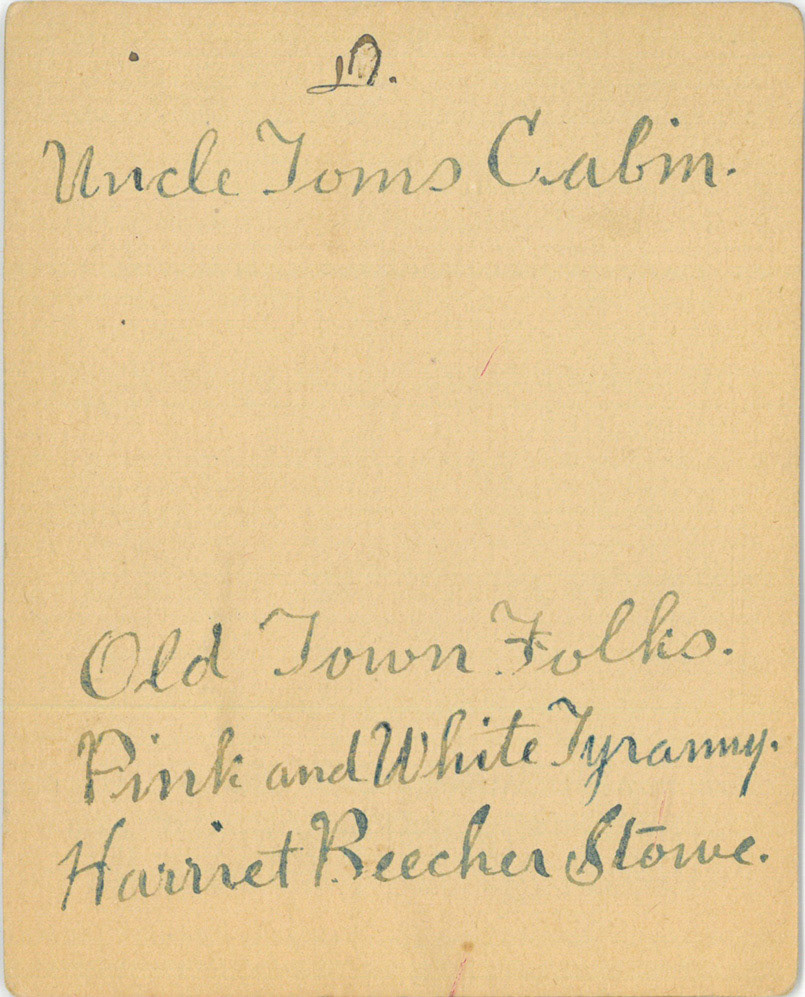 Uncle Toms Cabin.
Old Town Folks.
Pink and White Tyranny.
Harriet Beecher Stowe.